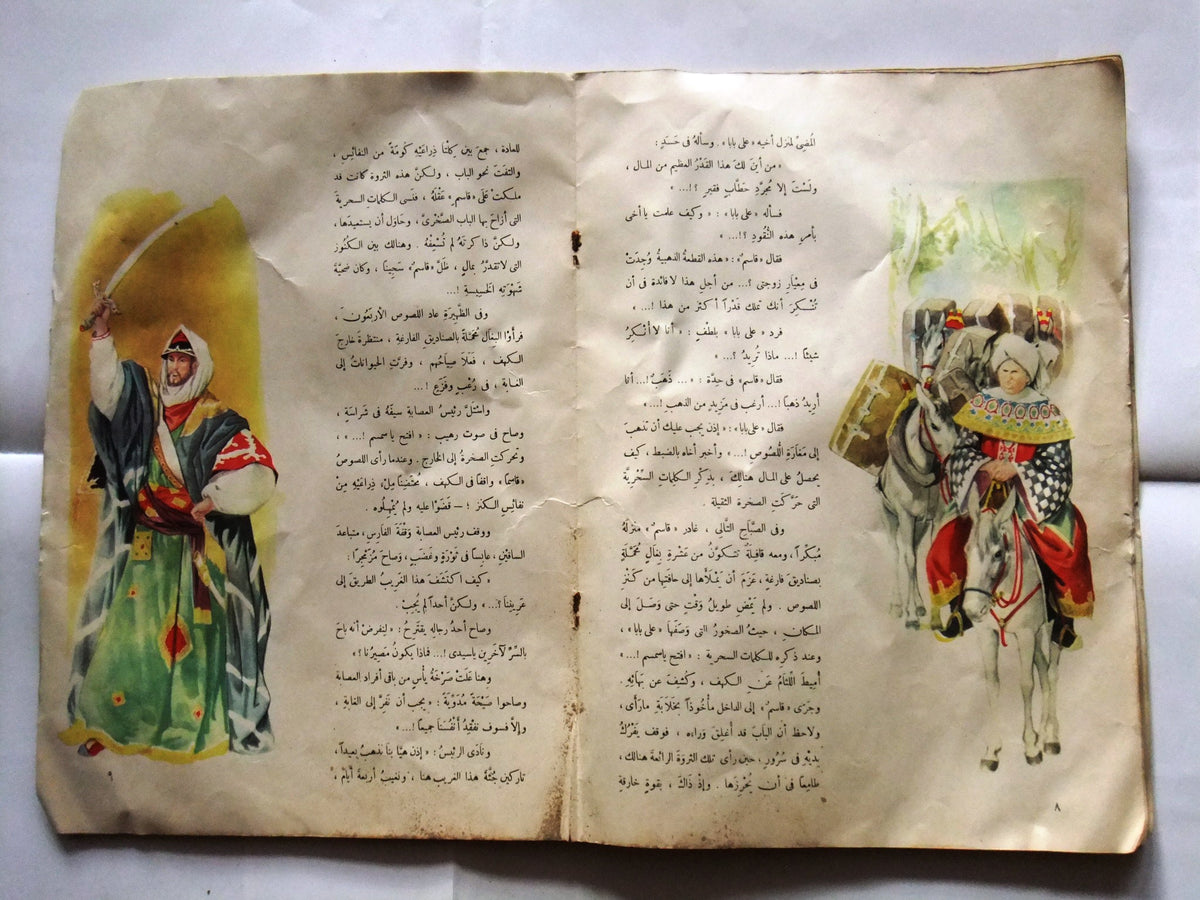 المُضِيَّ لمنزل أخيه «على بابا» . وسألهُ فى حَسَدٍ :
« من أينَ لكَ هذا القَدْرُ العظيم من المال ،
ولَسْتَ إلا مُجرَّدِ حَطَّابٍ فقيرٍ ؟!... »
فسأله « على بابا » : « وكيف علمت يا أخى
بأمرِ هذه النُّقُودِ ؟!... »
فقال « قاسم » : « هذه القطعةُ الذهبيةُ وُجِدَتْ
فى مِعْيَارِ زوجتى ؟... من أجل هذا لا فائدة فى أن
تُنْكِرَ أنك تملك قَدْراً أكثرَ من هذا !... »
فرد « على بابا » بلطفٍ : « أنا لا أُنْكِرُ
شيئًا !... ماذا تُريدُ ؟... »
فقال « قاسم » فى حِدَّة : « ... ذَهَبٌ !... أنا
أريدُ ذهبًا !... أرغبُ فى مَزِيدٍ من الذهبِ !... »
فقال « على بابا » : « إذن يجبُ عليك أن تذهبَ
إلى مَغَارَةِ اللُّصُوصِ !... » وأخبر أخاه بالضبط ، كيف
يحصلُ على المال هنالكَ ، بذِكْرِ الكلماتِ السِّحْرِيَّةِ
التى حَرَّكَتِ الصخرة الثقيلة .
وفى الصَّبَاحِ التَّالِى ، غادر « قاسم » منزلَهُ
مُبَكِّراً ، ومعه قافِلَةٌ تتكوَّنُ من عَشْرَةِ بِغَالٍ مُحَمَّلَةٍ
بصناديقَ فارغةٍ ، عَزَمَ أن يَمْلَأَها إلى حافتِها من كَنْزِ
اللصوص . ولم يَمْضِ طويلُ وَقْتٍ حتى وَصَلَ إلى
المكان ، حيثُ الصخورُ التى وَصَفَهَا « على بابا » ،
وعند ذكره للكلمات السحرية : « افتح يا سمسم !... »
أُمِيطَ اللِّثَامُ عَنِ الكهف ، وكُشِفَ عن بَهائِهِ .
وجَرَى « قاسم » إلى الداخل مأْخُوذاً بخَلَابَةِ ما رَأَى ،
ولاحظ أن البابَ قد أُغلِقَ وراءه ، فوقف يَفْرُكُ
يديْهِ فى سُرُورٍ ، حين رأى تلك الثروةَ الرائعةَ هنالك ،
طامِعًا فى أن يُحْرِزَها . وإذ ذَاكَ ، بقوةٍ خارقةٍ
٨
للعادة ، جمعَ بين كِلْتَا ذِرَاعَيْهِ كُومَةً من النفائِسِ ،
والتفتَ نحو الباب ، ولكنَّ هذه الثروة كانت قد
ملكتْ عَلَى « قاسمٍ » عَقْلَهُ ، فنسى الكلماتِ السحريةَ
التى أزاحَ بها البابَ الصَّخْرِىَّ ، وحَاولَ أن يستعيدَها ،
ولكنَّ ذاكرتَهُ لم تُسْعِفْهُ . وهنالك بين الكُنُوز
التى لا تقدَّرُ بمالٍ ، ظَلَّ « قاسمٌ » سَجِينًا ، وكان ضحيَّةَ
شَهْوَتِهِ الخسيسةِ !...
وفى الظَّهِيرَةِ عاد اللصوص الأربَعُون ،
فرأوْا البِغَالَ مُحَمَّلَةً بالصناديق الفارغةِ ، منتظرةً خارجَ
الكهف ، فَعَلَا صِيَاحُهم ، وفرَّتِ الحيواناتُ إلى
الغـابة ، فى رُعْبٍ وفَزَعٍ !...
واسْتَلَّ رئيسُ العصابةِ سيفَهُ فى شَراسةٍ ،
وصاح فى صوت رهيب : « افتح يا سمسم !... » ،
وتحركتِ الصخرةُ إلى الخارج . وعندما رأى اللصوصُ
« قاسمًا » واقفًا فى الكهف ، مُحْتَضِنًا مِلْءَ ذِرَاعَيْهِ مِنْ
نفائسِ الكنز ؛ – قَضَوْا عليه ولم يُمْهِلُوه .
ووقف رئيس العصابة وَقْفَةَ الفارِسِ ، متباعدَ
الساقيْنِ ، عابِسًا فى ثَوْرَةٍ وغَضَبٍ ، وصَاحَ مُزَمْجِراً :
« كيف اكتَشَفَ هذا الغَرِيبُ الطريقَ إلى
عَرِينِنَا ؟... » ولكنَّ أحداً لم يُجِبْ .
وصاح أحدُ رجالِهِ يقْتَرِحُ : « ليُفرضْ أنه باحَ
بالسِّرِّ لآخَرِينَ يا سيدى !... فماذا يكونُ مَصِيرُنا ؟ »
وهنا عَلَتْ صَرْخَةُ يأْسٍ من باقى أفراد العصابة
وصاحوا صَيْحَةً مُدَوِّيَةً : « يجبُ أن نَفِرَّ إلى الغابةِ ،
وإلَّا فسوف نَفْقِدُ أَنْفُسَنَا جميعًا !... »
ونَادَى الرئيسُ : « إذن هيَّا بنَا نذهبُ بعيداً ،
تاركينَ جُثَّةَ هذا الغريبِ هنا ، ونَغِيبُ أربعةَ أيَّامٍ ،
٩